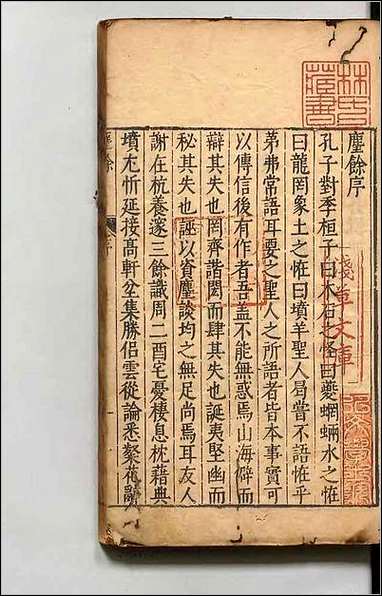 麈餘序
孔子對季桓子曰木石之怪曰夔蝄蜽水之怪
曰龍罔象土之怪曰墳羊聖人曷嘗不語怪乎
苐弗常語耳要之聖人之所語者皆本事實可
以傳信後有作者吾盖不能無惑焉山海僻而
辯其失也罔齊諧閎而肆其失也誕夷堅幽而
秘其失也誣以資麈談均之無足尚焉耳友人
謝在杭養邃三餘識周二酉宅憂棲息枕藉典
墳尤忻延接高軒坌集勝侣雲從論悉粲花辭
麈餘
序
林氏藏書
淺草文庫